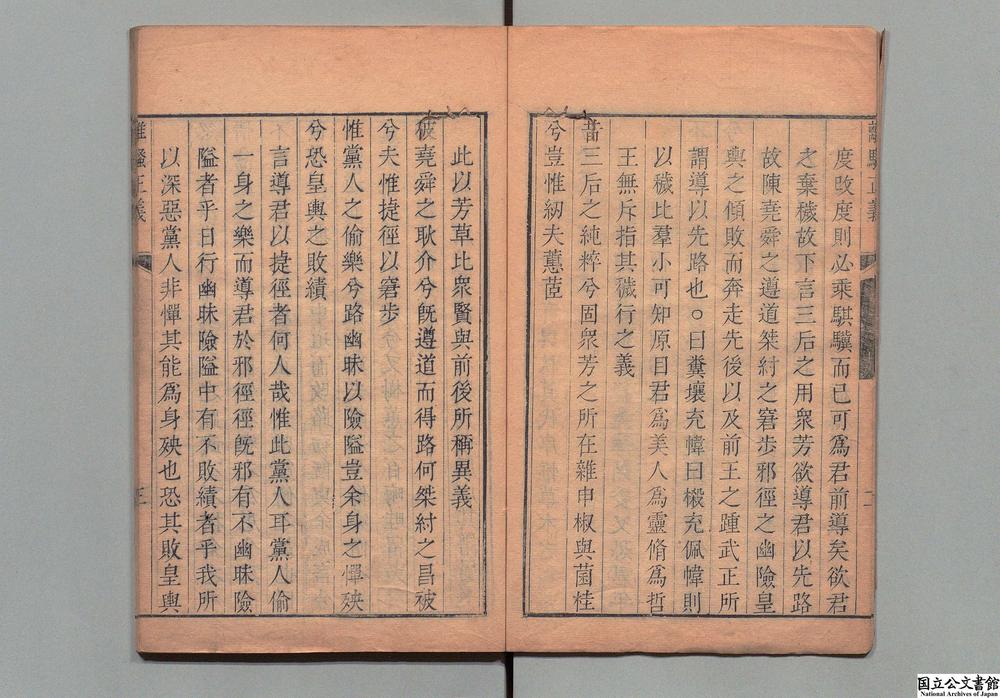 離騷正義
度改度則必乘騏驥而已可爲君前導矣欲君
之棄穢故下言三后之用衆芳欲導君以先路
故陳堯舜之遵道桀紂之窘步邪徑之幽險皇
輿之傾敗而奔走先後以及前王之踵武正所
謂導以先路也○曰糞壤充幃曰樧充佩幃則
以穢比羣小可知原目君爲美人爲靈脩爲哲
王無斥指其穢行之義
昔三后之純粹兮固衆芳之所在雜申椒與菌桂
兮豈惟紉夫蕙茝
此以芳草比衆賢與前後所稱異義
彼堯舜之耿介兮旣遵道而得路何桀紂之昌被
兮夫惟捷徑以窘步
惟黨人之偷樂兮路幽昧以險隘豈余身之憚殃
兮恐皇輿之敗績
言導君以捷徑者何人哉惟此黨人耳黨人偷
一身之樂而導君於邪徑徑旣邪有不幽昧險
隘者乎日行幽昧險隘中有不敗績者乎我所
以深惡黨人非憚其能爲身殃也恐其敗皇輿
離騷正義
三
国立公文書館
National Archives of Japan